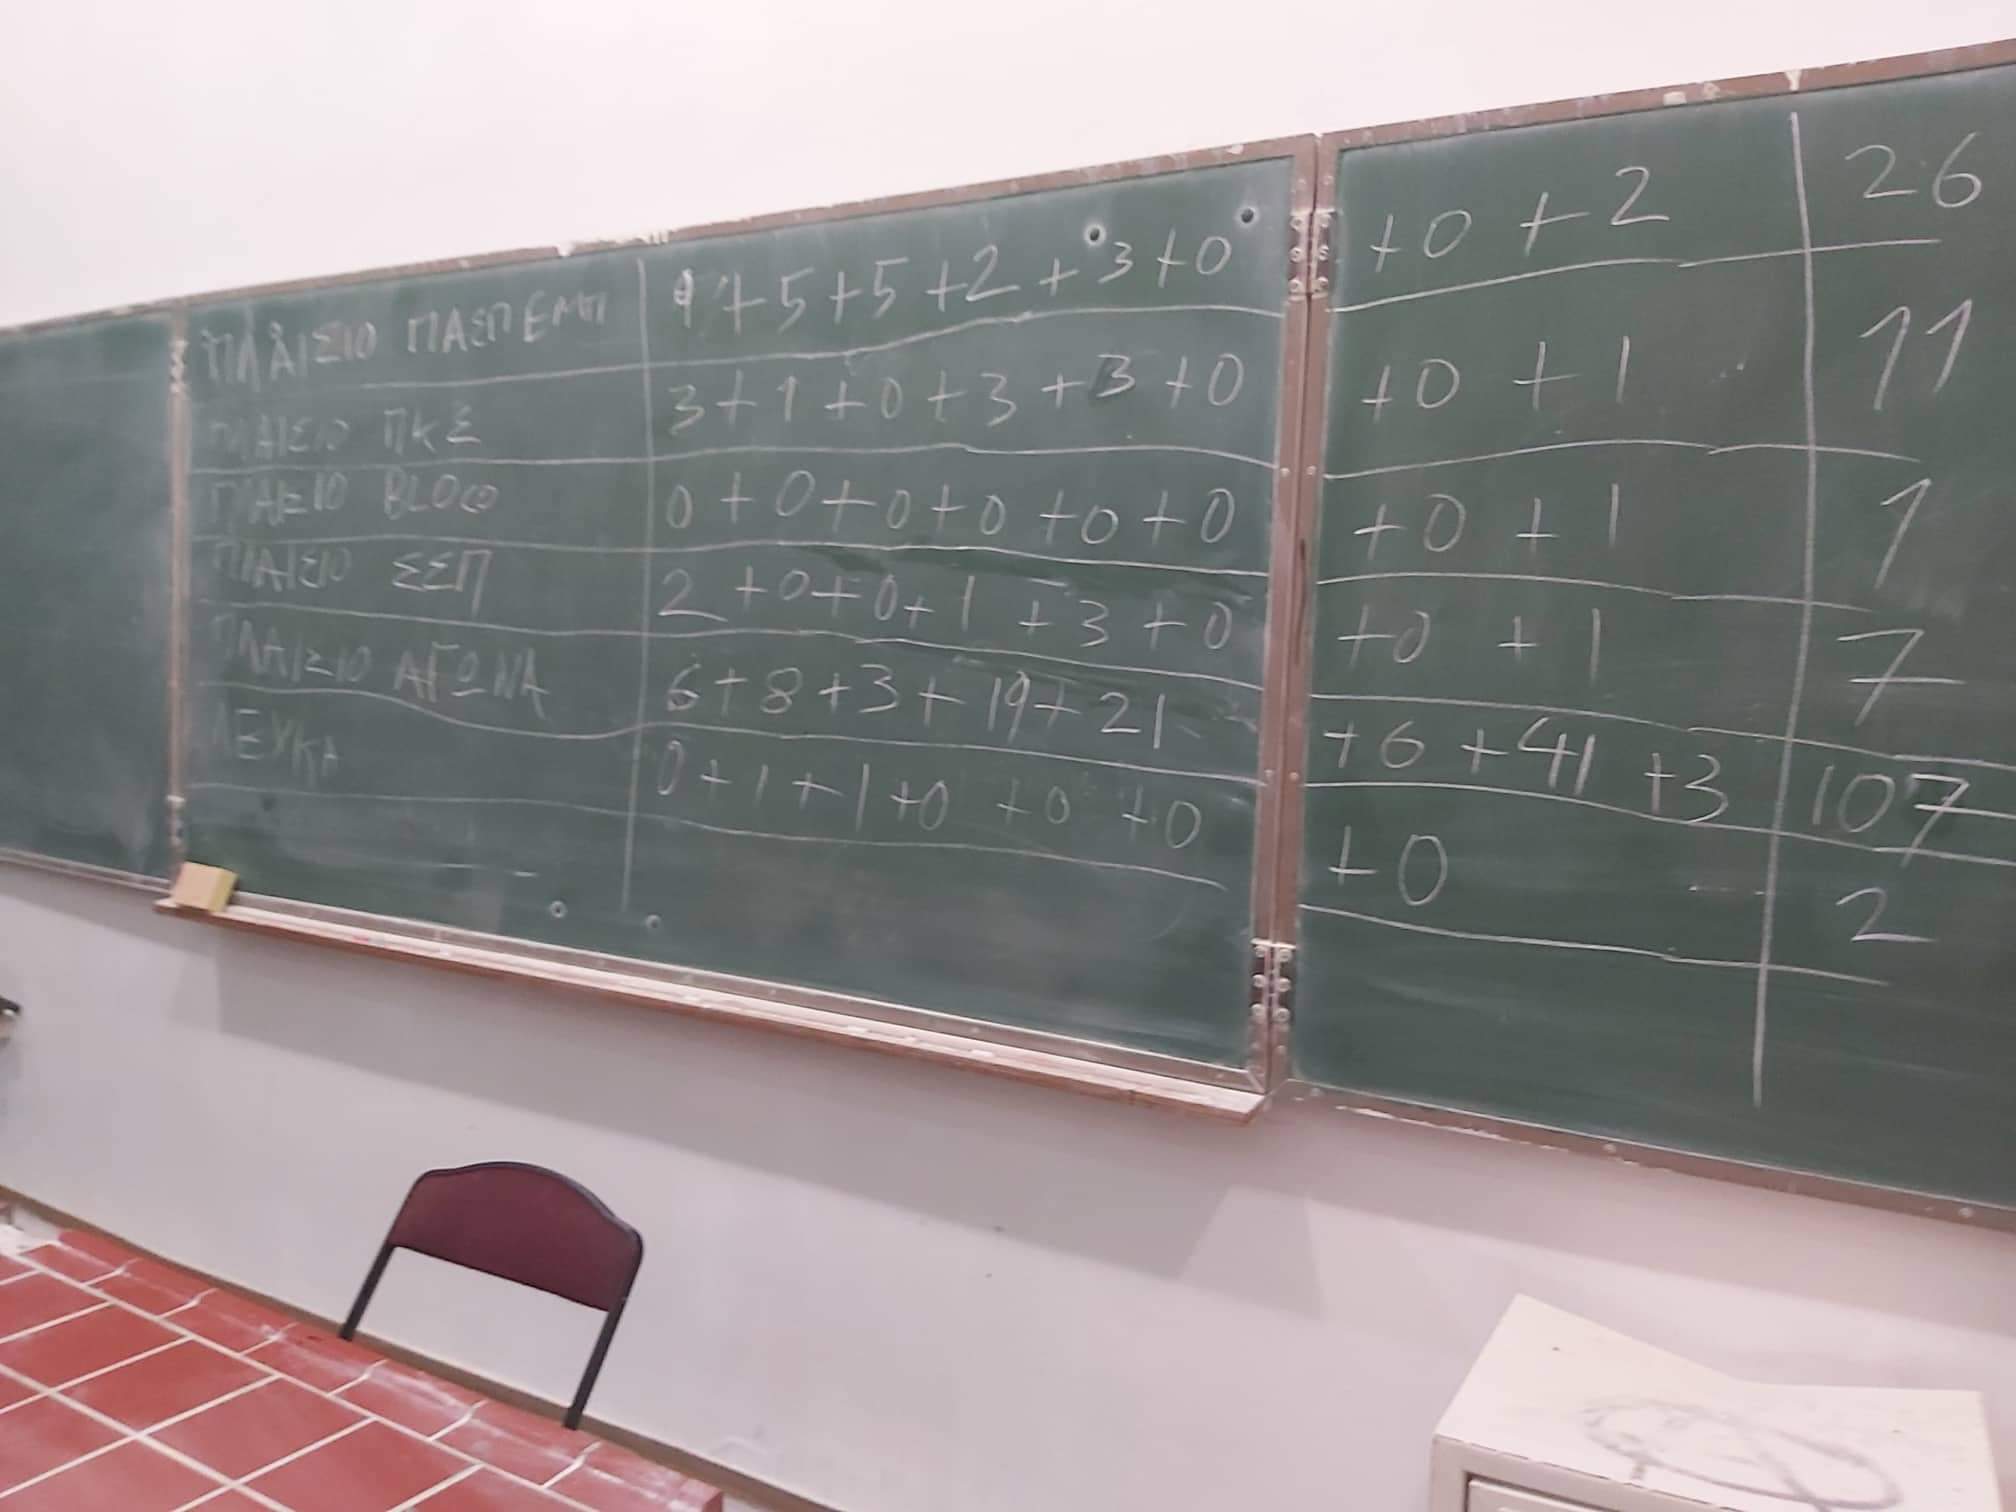 ΠΛΑΙΣΙΟ ΠΑΣΠΕΜΠ 9+5+5+2+3+0 +0+2 26
ΠΛΑΙΣΙΟ ΠΚΣ 3+1+0+3+3+0 +0+1 11
ΠΛΑΙΣΙΟ BLOCO 0+0+0+0+0+0 +0+1 1
ΠΛΑΙΣΙΟ ΣΣΠ 2+0+0+1+3+0 +0+1 7
ΠΛΑΙΣΙΟ ΑΓΩΝΑ 6+8+3+19+21 +6+41+3 107
ΛΕΥΚΑ 0+1+1+0+0+0 +0 2